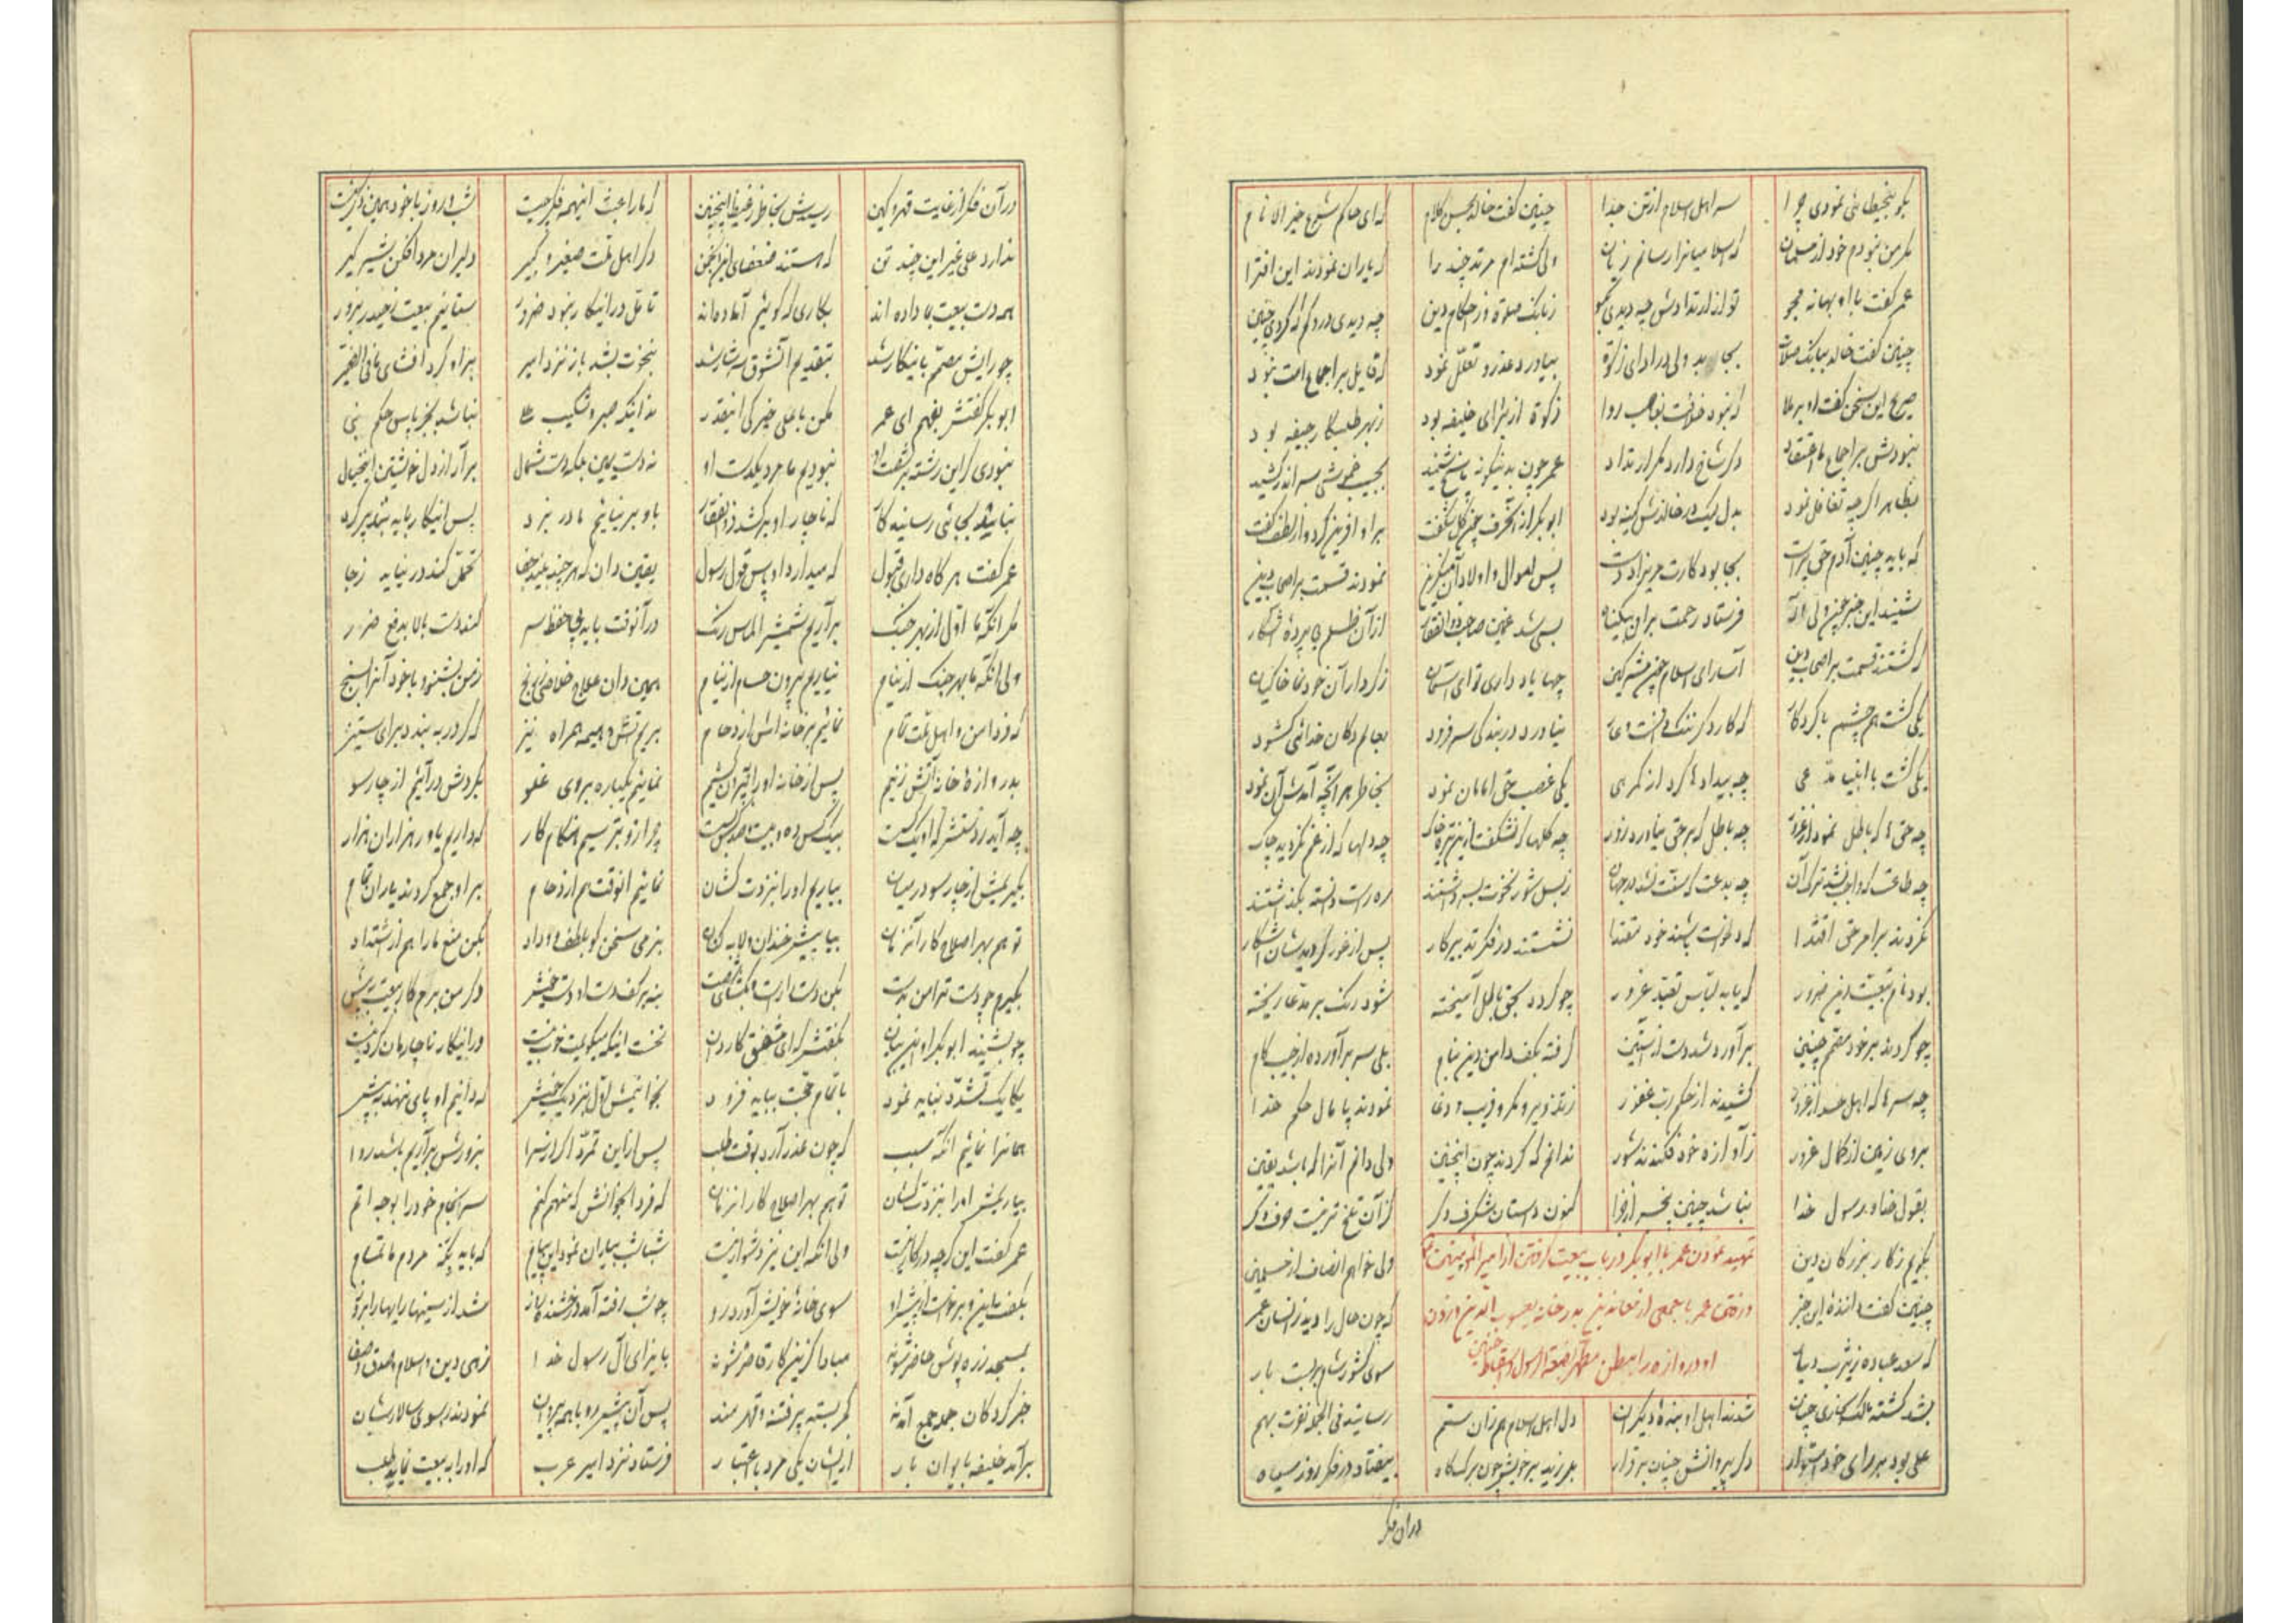 بگو بیخطائی نمودی چرا سر اهل اسلام از تن جدا چنین گفت خالد بحسن کلام که ای حاکم شرع خیر الانام
مگر من نبودم خود از مسلمان که اسلامیانرا رسانم زیان ولی کشته ام مرتد چند را که یاران نمودند این افترا
عمر گفت با او بهانه مجو تو از ارتدادش چه دیدی بگو ز بانک صلوة و ز احکام دین چه دیدی درو کم که کردی چنین
چنین گفت خالد ببانک صلات بجا بد ولی در ادای زکوة بیاورد عذر و تعلل نمود که قایل بر اجماع امت نبود
صریح این سخن گفت او بر ملا که نبود خلافت بغاصب روا زکوة از برای خلیفه بود ز بهر طلبکار جیفه بود
نبودش بر اجماع ما اعتقاد دگر شاخ دارد مگر ارتداد عمر چون بدینگونه پاسخ شنید بجیب خموشی سر اندر کشید
بظاهر اگرچه تغافل نمود بدل لیک در خالدش کینه بود ابوبکر از آنحرف چون گل شکفت بر او آفرین کرد و از لطف گفت
که باید چنین آدم حق پرست بجا بود کارت مریزاد دست پس اموال و اولاد آن نمودند قسمت بر اصحاب دین
شنید این خبر چون ولی اله فرستاد رحمت بر آن بیگناه بسی شد غمین صاحب ذوالفقار از آن ظلم بی پرده آشکار
که گشتند قسمت بر اصحاب دین اسارای اسلام چون مشرکین چها یاد داری تو ای آسمان ز کردار آن خودنما خاکیان
یکی گشت هم چشم با کردگار که کارد بینا ورد در بندگی سر فرود بعالم دکان خدائی گشود
یکی گشت با انبیا مدعی چه بیدادها کرد از گمرهی یکی غصب حق امامان نمود بخاطر هر آنچه آمدش آن نمود
چه حق ها که باطل نمود از غرور چه باطل که بر حق بیاورد زور چه گلها که نشکفت از این تیره خاک چه دلها که از غم نگردید چاک
چه بدعت که سنت نشد در جهان ز بس شور نخوت بسر داشتند ره راست دانسته بگذاشتند
نکردند بر امر حق اقتدا که دلخواست باشند خود مقتدا نشستند در فکر تدبیر کار پس از غور گردیدشان آشکار
بود نام بیعت در این ضرور که یابد لباس تعبد غرور چو گردد بحق باطل آمیخته شود رنگ بر مدعا ریخته
چو کردند بر خود مصمم چنین برآورد شد دست از آستین گرفته بکف دامن دین بنام بلی سر برآورده از جیب کام
چه سرها که اهل حسد از غرور کشیدند از حکم رب غفور ز تزویر و مکر و فریب و دغا نمودند پامال حکم خدا
بروی زمین از کمال غرور ز آوازه خود فکندند شور ندانم که کردند چون اینچنین ولی دانم آنرا که باشد یقین
بقول خدا و رسول خدا نباشد چنین کنون داستان شگرف دگر کز آن تلخ تر نیست حرف دگر
بگویم ز کار بزرگان دین ولی خواهم انصاف از سامعین
تمهید نمودن عمر با ابوبکر در باب بیعت گرفتن از امیر المومنین
چنین گفت راننده این خبر که چون حال را دید زانسان عمر
و رفتن عمر با جمعی از معاندین بدر خانه یعسوب الدین و زدن
که سعد عباده ز یثرب دیار سوی کشور شام بربست بار
او دروازه را ببطن مطهر بضعة الرسول
بشد کشته مالک بخاری چنان شدند اهل او بنده دیگران دل اهل اسلام هم زان ستم رسانید فی الجمله نفرت بهم
علی بود بر رای خود استوار دگر پیروانش چنان برقرار بلرزید بر خویش چون برگ کاه بیفتاد در فکر روز سیاه
دران فکر
در آن فکر از غایت قهر و کین رسیدش بخاطر ز غیظ اینچنین که ما را عبث اینهمه فکر چیست شب و روز با خود همین ذکر چیست
ندارد علی غیر این چند تن که هستند ضعفای این انجمن دگر اهل ملت صغیر و کبیر دلیران مردافکن شیر گیر
همه دست بیعت بما داده اند بکاری که گوئیم آماده اند تامل در اینکار نبود ضرور ستانیم بیعت ز حیدر بزور
چو رایش مصمم باینکار شد بتقدیم آنشوق سرشار شد بنخوت بشد باز نزد امیر بر او کرد افشای ما فی الضمیر
ابوبکر گفتش بفهم ای عمر مکن با علی خیرگی اینقدر نه اینکه صبر و شکیب علی نباشد بجز پاس حکم نبی
نبودی گر این رشته بر شصت او نبودیم ما مرد یکدست او نه دست یمین بلکه دست شمال برآر از دل خویشتن این خیال
نباید بجائی رسانید کار که ناچار او برکشد ذوالفقار باو بر نیائیم ما در نبرد پس اینکار باید بتدبیر کرد
عمر گفت هرگاه داری قبول که میدارد او پس قول رسول یقین دان که هر چند بیند جفا تحمل کند در نیاید ز جا
مگر آنکه ما اول از بهر جنگ برآریم شمشیر الماس رنگ در آنوقت باید پی حفظ سر کند دست بالا بدفع ضرر
ولی آنکه ما بهر جنگ از نیام نیاریم بیرون حسام از نیام همین دان علاج خلاصی ز رنج ز من بشنو و با خود آنرا بسنج
که فردا من و اهل ملت تمام نمائیم بر خانه اش ازدحام بریم آتش و هیمه همراه نیز که گر در ببندد برای ستیز
بدروازه خانه آتش زنیم پس از خانه او را بیرون کشیم نمائیم یکباره بروی غلو بگردش در آئیم از چارسو
چه آید ز دستش که او یکیست بیک کس ده و بیست و صد بس است چرا زو بترسیم هنگام کار که داریم یاور هزاران هزار
بگیریمش از چارسو در میان بیاریم او را بنزدت کشان نمائیم آنوقت هم ازدحام بر او جمع گردند یاران تمام
تو هم بهر اصلاح کار آنزمان بیا پیشتر خندان و لابه کنان بنرمی سخن گو بلطف و وداد بکن منع ما را هم از اشتداد
بگیرم چو دست ترا من بدست بکن دست راست بگشای شصت بنه بر کف دست او دست خویش دگر من برم کار بیعت به پیش
چو بشنید ابوبکر از این بیان بگفتش که ای مشفق کاردان نخست اینکه میگویمت خوب نیست در اینکار ناچارمان کرد نیست
یکایک تشدد نباید نمود باتمام حجت بباید فزود بخوانیمش اول بنزدیک خویش که دانیم او پای ننهد به پیش
همانرا نمائیم آنگه سبب که چون عذر آرد بوقت طلب پس از این تمرد اگر از سرا بزورش برآریم باشد روا
بیاریمش او را بنزدت کشان تو هم بهر اصلاح کار آنزمان که فردا بخوانش که متهم کنم سرانجام خود را بوجه اتم
عمر گفت این گرچه در کار نیست ولی آنکه این نیز دشوار نیست شباشب بیاران نمود این پیام که باید پگه مردم ما تمام
بکف و برخاست از پیش او سوی خانه خویش آورد رو چو شب رفته آمد درخشنده باز شد از سینها
بمسجد زره پوش حاضر شوند مبادا کزین کار قاصر شوند بایذای آل رسول خدا زهی دین و اسلام و صدق و صفا
خبر کردگان جمله جمع آمدند کمر بسته پر فتنه و قهرمند پس آن پیشرو با همه پیروان نمودند رو سوی سالارشان
برآمد خلیفه بایوان بار از ایشان یکی مرد با اعتبار فرستاد نزد امیر عرب که او را به بیعت نماید طلب